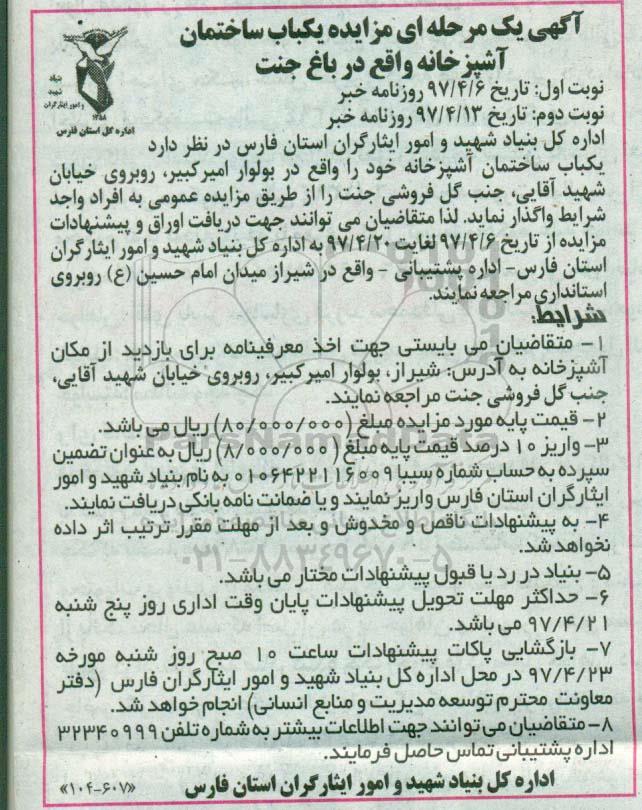 آگهی یک مرحله ای مزایده یکباب ساختمان
آشپزخانه واقع در باغ جنت
بنیاد
شهید
و امور ایثارگران
۱۳۵۸
اداره کل استان فارس
نوبت اول: تاریخ ۹۷/۴/۶ روزنامه خبر
نوبت دوم: تاریخ ۹۷/۴/۱۳ روزنامه خبر
اداره کل بنیاد شهید و امور ایثارگران استان فارس در نظر دارد
یکباب ساختمان آشپزخانه خود را واقع در بولوار امیرکبیر، روبروی خیابان
شهید آقایی، جنب گل فروشی جنت را از طریق مزایده عمومی به افراد واجد
شرایط واگذار نماید. لذا متقاضیان می توانند جهت دریافت اوراق و پیشنهادات
مزایده از تاریخ ۹۷/۴/۶ لغایت ۹۷/۴/۲۰ به اداره کل بنیاد شهید و امور ایثارگران
استان فارس- اداره پشتیبانی - واقع در شیراز میدان امام حسین (ع) روبروی
استانداری مراجعه نمایند.
شرایط:
۱- متقاضیان می بایستی جهت اخذ معرفینامه برای بازدید از مکان
آشپزخانه به آدرس: شیراز، بولوار امیرکبیر، روبروی خیابان شهید آقایی،
جنب گل فروشی جنت مراجعه نمایند.
۲- قیمت پایه مورد مزایده مبلغ (۸۰/۰۰۰/۰۰۰) ریال می باشد.
۳- واریز ۱۰ درصد قیمت پایه مبلغ (۸/۰۰۰/۰۰۰) ریال به عنوان تضمین
سپرده به حساب شماره سیبا ۰۱۰۶۴۲۲۱۱۶۰۰۹ به نام بنیاد شهید و امور
ایثارگران استان فارس واریز نمایند و یا ضمانت نامه بانکی دریافت نمایند.
۴- به پیشنهادات ناقص و مخدوش و بعد از مهلت مقرر ترتیب اثر داده
نخواهد شد.
۵- بنیاد در رد یا قبول پیشنهادات مختار می باشد.
۶- حداکثر مهلت تحویل پیشنهادات پایان وقت اداری روز پنج شنبه
۹۷/۴/۲۱ می باشد.
۷- بازگشایی پاکات پیشنهادات ساعت ۱۰ صبح روز شنبه مورخه
۹۷/۴/۲۳ در محل اداره کل بنیاد شهید و امور ایثارگران فارس (دفتر
معاونت محترم توسعه مدیریت و منابع انسانی) انجام خواهد شد.
۸- متقاضیان می توانند جهت اطلاعات بیشتر به شماره تلفن ۳۲۳۴۰۹۹۹
اداره پشتیبانی تماس حاصل فرمایند.
اداره کل بنیاد شهید و امور ایثارگران استان فارس
«۱۰۴-۶۰۷»
ParsNamadData
۰۲۱-۸۸۳۴۹۶۷۰-۵